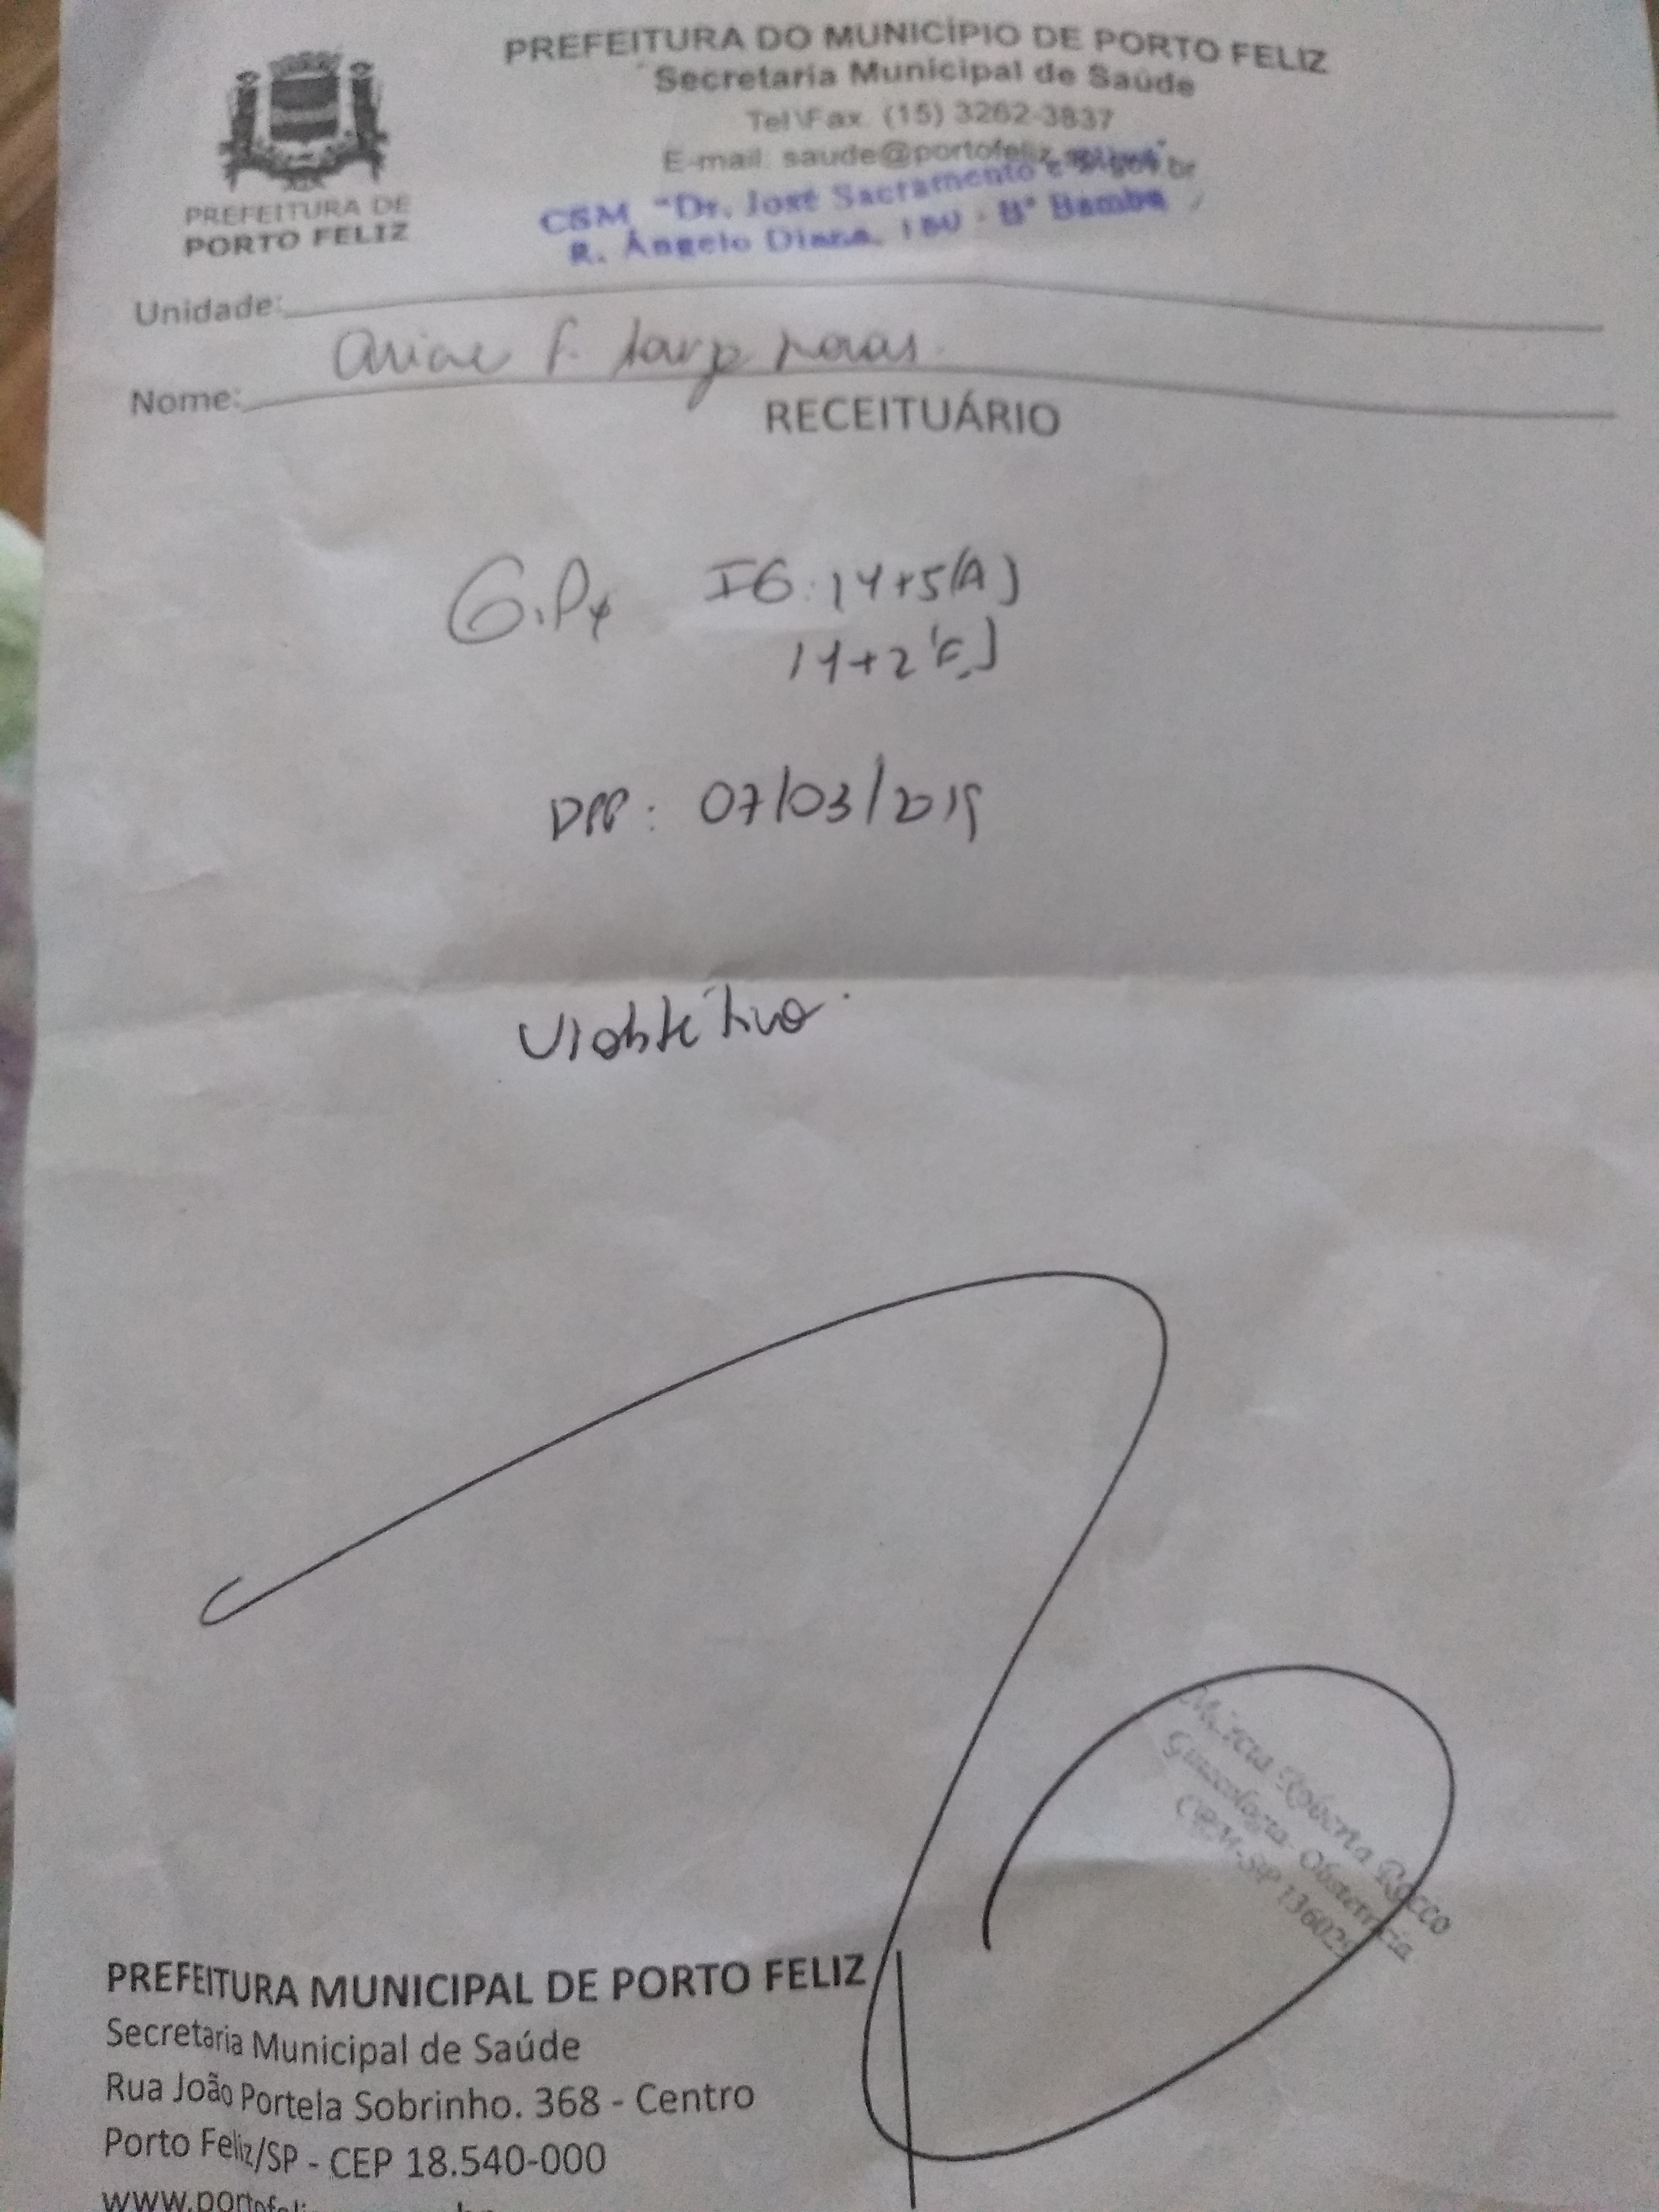 PREFEITURA DO MUNICÍPIO DE PORTO FELIZ
Secretaria Municipal de Saúde
Tel\Fax. (15) 3262-3837
E-mail: saude@portofeliz.sp.gov.br
CSM "Dr. José Sacramento e Silva"
R. Ângelo Diana, 180 - Bº Bambu
PREFEITURA DE
PORTO FELIZ
Unidade:
Nome: F.
RECEITUÁRIO
IG: 14+5(A)
14+2
DPP: 07/03/2019
Márcia Roberta Rocco
Ginecologia - Obstetrícia
CRM-SP
PREFEITURA MUNICIPAL DE PORTO FELIZ
Secretaria Municipal de Saúde
Rua João Portela Sobrinho. 368 - Centro
Porto Feliz/SP - CEP 18.540-000